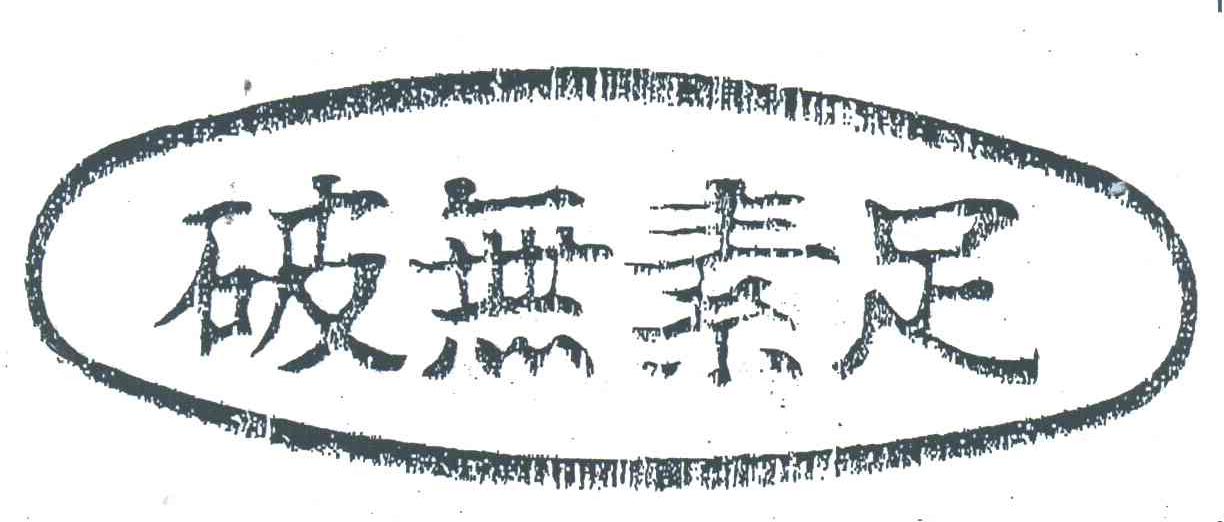 破無素足